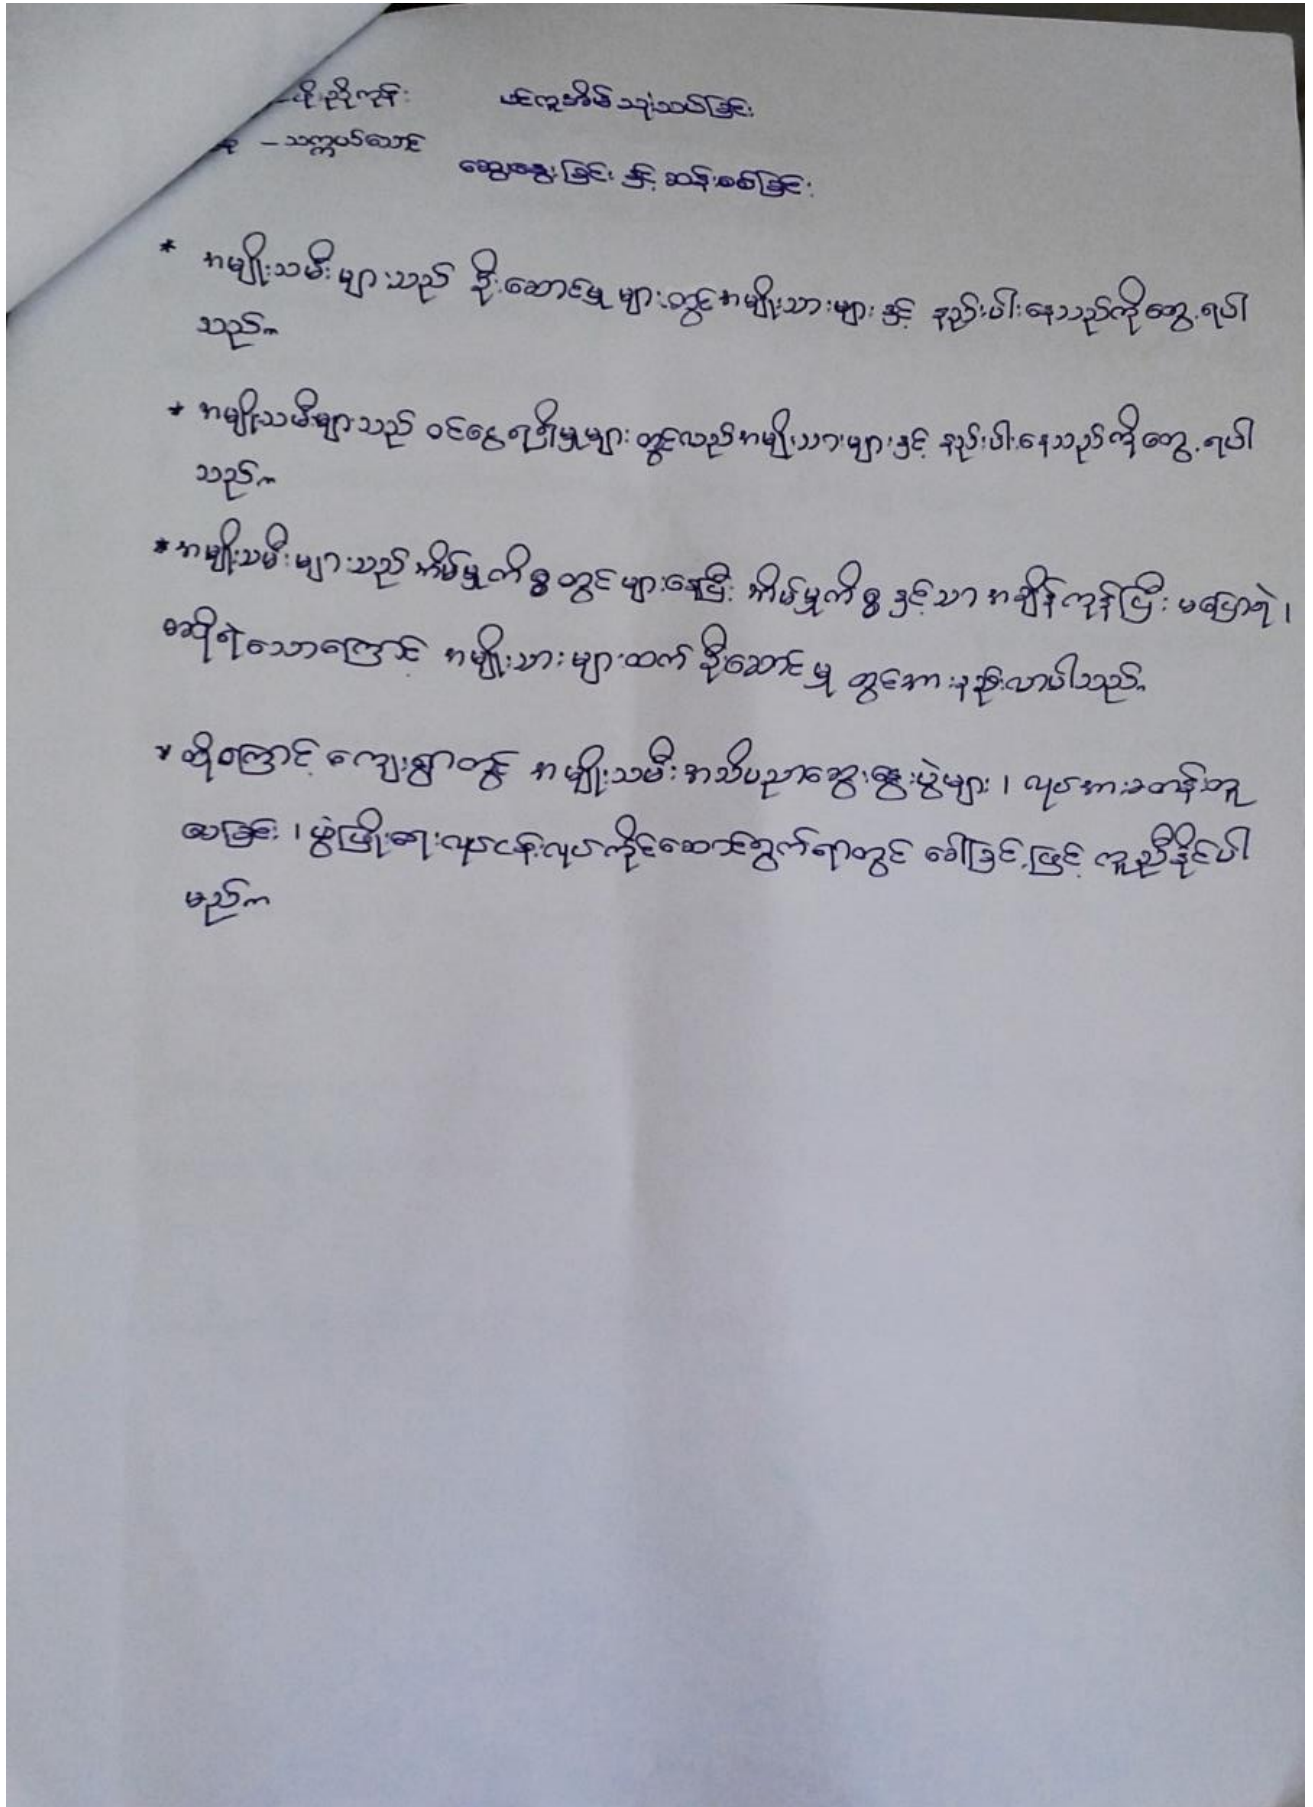 ပင်ကူအိမ် သုံးသပ်ခြင်း
– သက္ကယ်သောင်
ဆွေးနွေးခြင်း နှင့် ဆန်းစစ်ခြင်း
* အမျိုးသမီးများသည် ဦးဆောင်မှုများတွင်အမျိုးသားများ နှင့် နည်းပါးနေသည်ကိုတွေ့ရပါ
သည်။
* အမျိုးသမီးများသည် ဝင်ငွေရရှိမှုများတွင်လည်အမျိုးသားများနှင့် နည်းပါးနေသည်ကိုတွေ့ရပါ
သည်။
* အမျိုးသမီးများသည်အိမ်မှုကိစ္စတွင်များနေပြီး အိမ်မှုကိစ္စနှင့်သာအချိန်ကုန်ပြီး မပြောရဲ ၊
မဆိုရဲသောကြောင့် အမျိုးသားများထက် ဦးဆောင်မှု တွင်အားနည်းလာပါသည်။
* ထို့ကြောင့် ကျေးရွာတွင် အမျိုးသမီးအသိပညာဆွေးနွေးပွဲများ ၊ လုပ်အားခတန်းတူ
ပေးခြင်း ၊ ဖွံ့ဖြိုးရေးလုပ်ငန်းလုပ်ကိုင်ဆောင်ရွက်ရာတွင် ခေါ်ခြင်းဖြင့် ကူညီနိုင်ပါ
မည်။